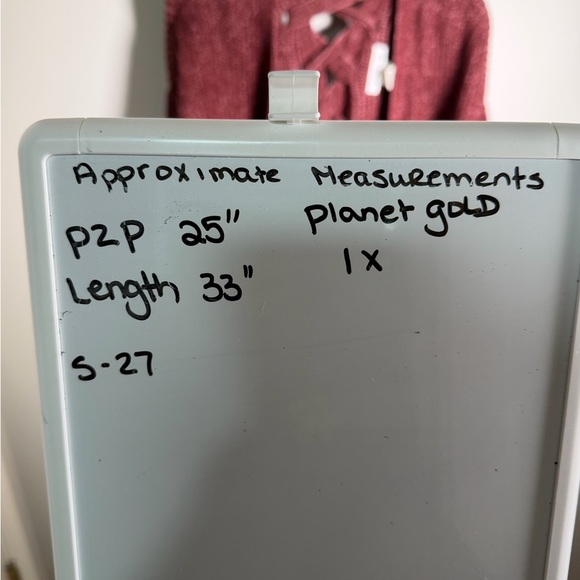 Approximate Measurements
P2P 25" Planet gOLD
Length 33" 1X
S-27